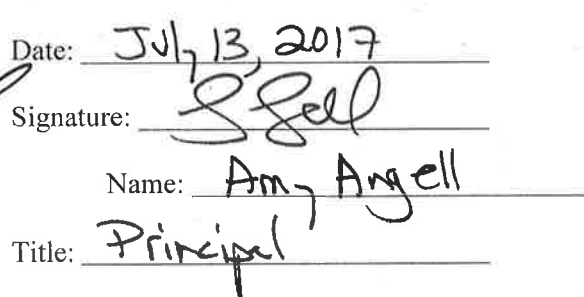 Date: July 13, 2017
Signature:
Name: Amy Angell
Title: Principal